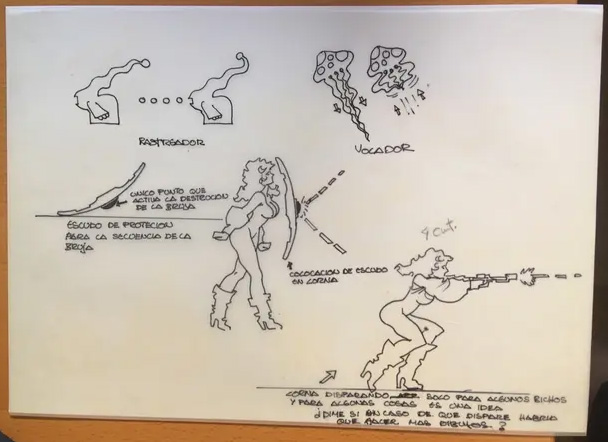 RASTREADOR
VOLADOR
UNICO PUNTO QUE
ACTIVA LA DESTRUCION
DE LA BRUJA
ESCUDO DE PROTECION
PARA LA SECUENCIA DE LA
BRUJA
COLOCACION DE ESCUDO
EN LORNA
LORNA DISPARANDO SOLO PARA ALGUNOS BICHOS
Y PARA ALGUNAS COSAS ES UNA IDEA
¿DIME SI EN CASO DE QUE DISPARE HABRIA
QUE HACER MAS DIBUJOS?